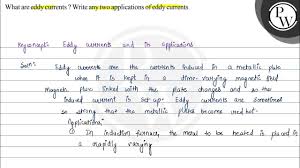 What are eddy currents ? Write any two applications of eddy currents
Keyconcept- Eddy currents and its applications
Soln:- Eddy currents are the currents induced in a metallic plate
when it is kept in a time-varying magnetic field
magnetic flux linked with the plates changes and so the
induced current is set-up. Eddy currents are sometimes
so strong that the metallic plates become red hot.
Applications:
① In induction furnace, the metal to be heated is placed in
a rapidly varying